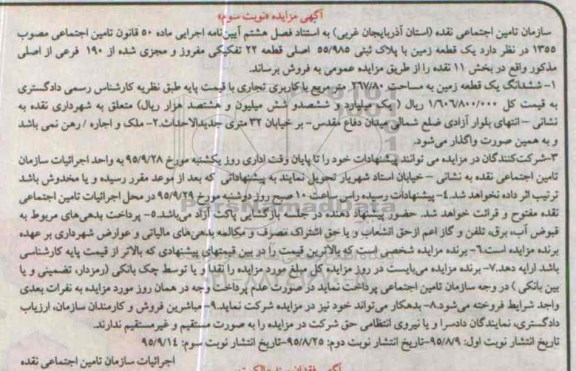 آگهی مزایده «نوبت سوم»
سازمان تامین اجتماعی نقده (استان آذربایجان غربی) به استناد فصل هشتم آیین‌نامه اجرایی ماده ۵۰ قانون تامین اجتماعی مصوب
۱۳۵۵ در نظر دارد یک قطعه زمین با پلاک ثبتی ۵۵/۹۸۵ اصلی قطعه ۲۲ تفکیکی مفروز و مجزی شده از ۱۹۰ فرعی از اصلی
مذکور واقع در بخش ۱۱ نقده را از طریق مزایده عمومی به فروش برساند.
۱- ششدانگ یک قطعه زمین به مساحت ۲۶۷/۸۰ متر مربع با کاربری تجاری با قیمت پایه طبق نظریه کارشناس رسمی دادگستری
به قیمت کل ۱/۶۰۶/۸۰۰/۰۰۰ ریال (یک میلیارد و ششصد و شش میلیون و هشتصد هزار ریال) متعلق به شهرداری نقده به
نشانی - انتهای بلوار آزادی ضلع شمالی میدان دفاع مقدس- بر خیابان ۳۲ متری جدیدالاحداث.۲- ملک و اجاره / رهن نمی باشد
و به همین صورت واگذار می‌شود.
۳-شرکت‌کنندگان در مزایده می توانند پیشنهادات خود را تا پایان وقت اداری روز یکشنبه مورخ ۹۵/۹/۲۸ به واحد اجرائیات سازمان
تامین اجتماعی نقده به نشانی - خیابان استاد شهریار تحویل نمایند به پیشنهاداتی که بعد از موعد مقرر رسیده و یا مخدوش باشد
ترتیب اثر داده نخواهد شد.۴- پیشنهادات رسیده راس ساعت ۱۰ صبح روز دوشنبه مورخ ۹۵/۹/۲۹ در محل اجرائیات تامین اجتماعی
نقده مفتوح و قرائت خواهد شد. حضور پیشنهاد دهنده در جلسه بازگشایی پاکت آزاد می‌باشد.۵- پرداخت بدهی‌های مربوط به
قبوض آب، برق، تلفن و گاز اعم از حق انشعاب و یا حق اشتراک مصرف و مکالمه بدهی‌های مالیاتی و عوارض شهرداری بر عهده
برنده مزایده است.۶- برنده مزایده شخصی است که بالاترین قیمت را در بین قیمتهای پیشنهادی که بالاتر از قیمت پایه کارشناسی
باشد ارایه دهد.۷- برنده مزایده می‌بایست در روز مزایده کل مبلغ مورد مزایده را نقدا و یا توسط چک بانکی (رمزدار، تضمینی و یا
بین بانکی) در وجه سازمان تامین اجتماعی پرداخت نماید در صورت عدم پرداخت وجه در همان روز مورد مزایده به نفرات بعدی
واجد شرایط فروخته می‌شود.۸- بدهکار می‌تواند خود نیز در مزایده شرکت نماید.۹- مباشرین فروش و کارمندان سازمان، ارزیاب
دادگستری، نمایندگان دادسرا و یا نیروی انتظامی حق شرکت در مزایده را به صورت مستقیم و غیرمستقیم ندارند.
تاریخ انتشار نوبت اول: ۹۵/۸/۹-تاریخ انتشار نوبت دوم: ۹۵/۸/۲۵-تاریخ انتشار نوبت سوم: ۹۵/۹/۱۴
اجرائیات سازمان تامین اجتماعی نقده